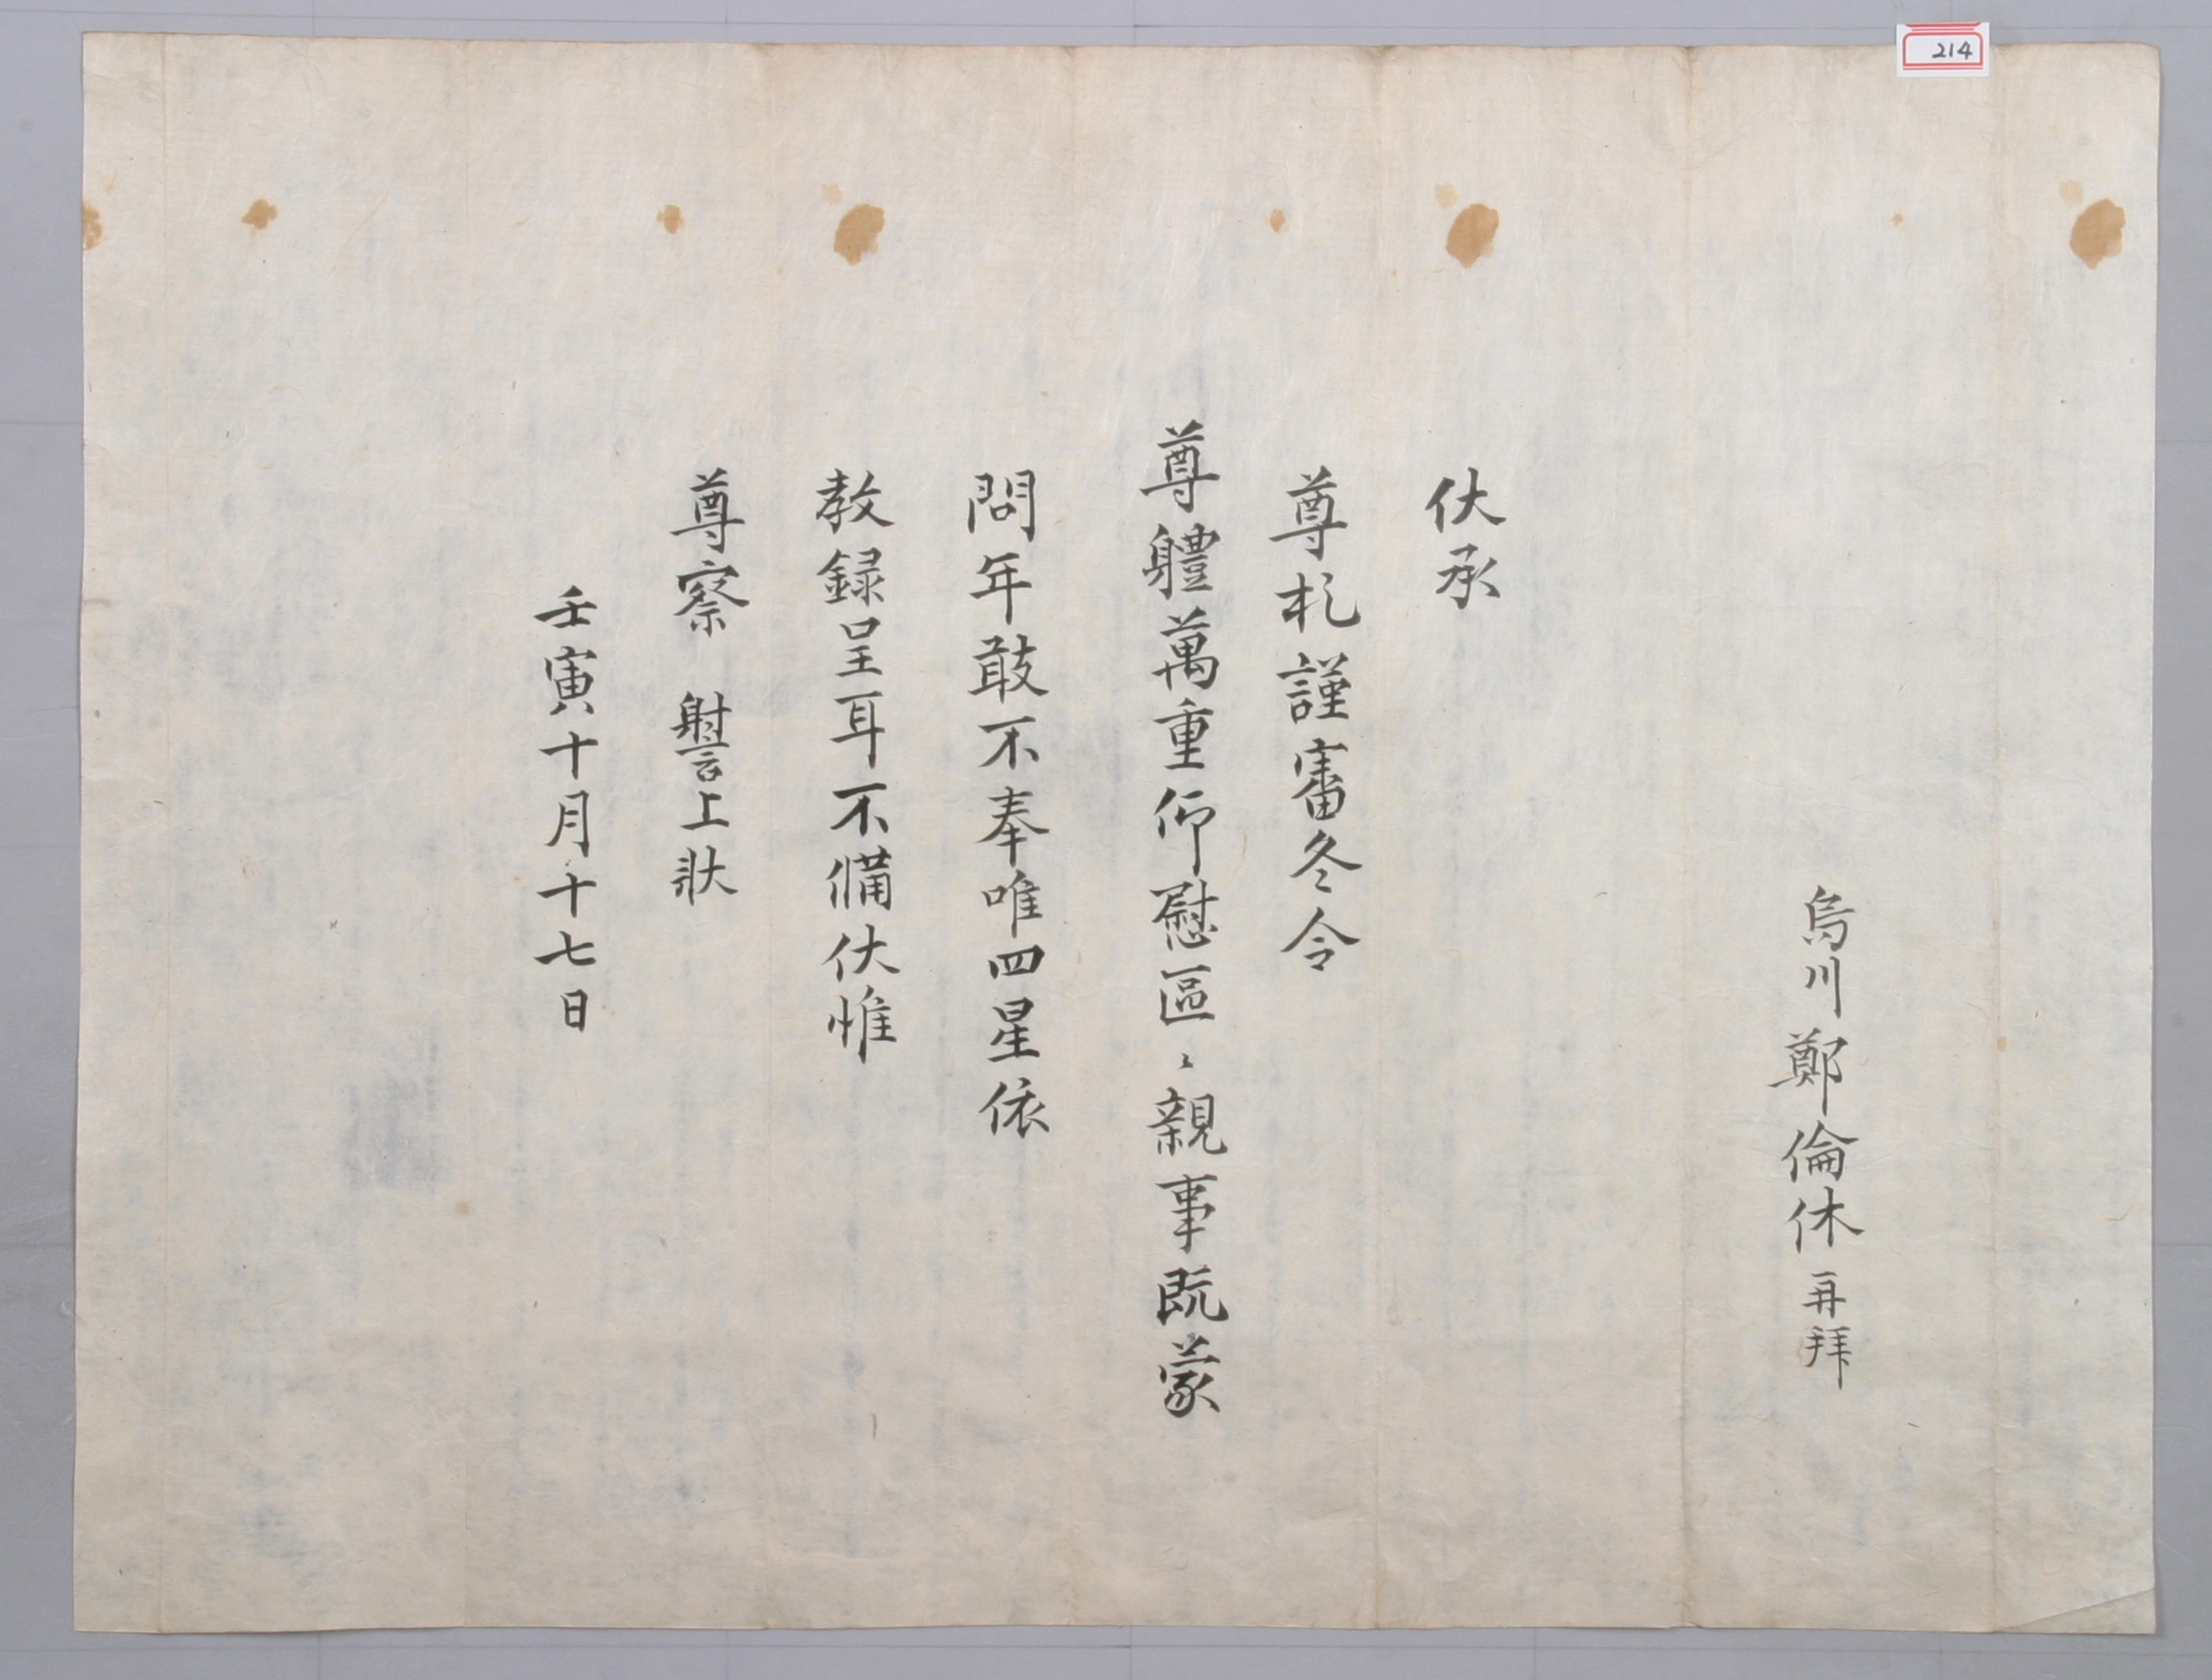 214
烏川鄭倫休再拜
伏承
尊札謹審冬令
尊軆萬重仰慰區〻親事既蒙
問年敢不奉唯四星依
教録呈耳不備伏惟
尊察 謺上狀
壬寅十月十七日